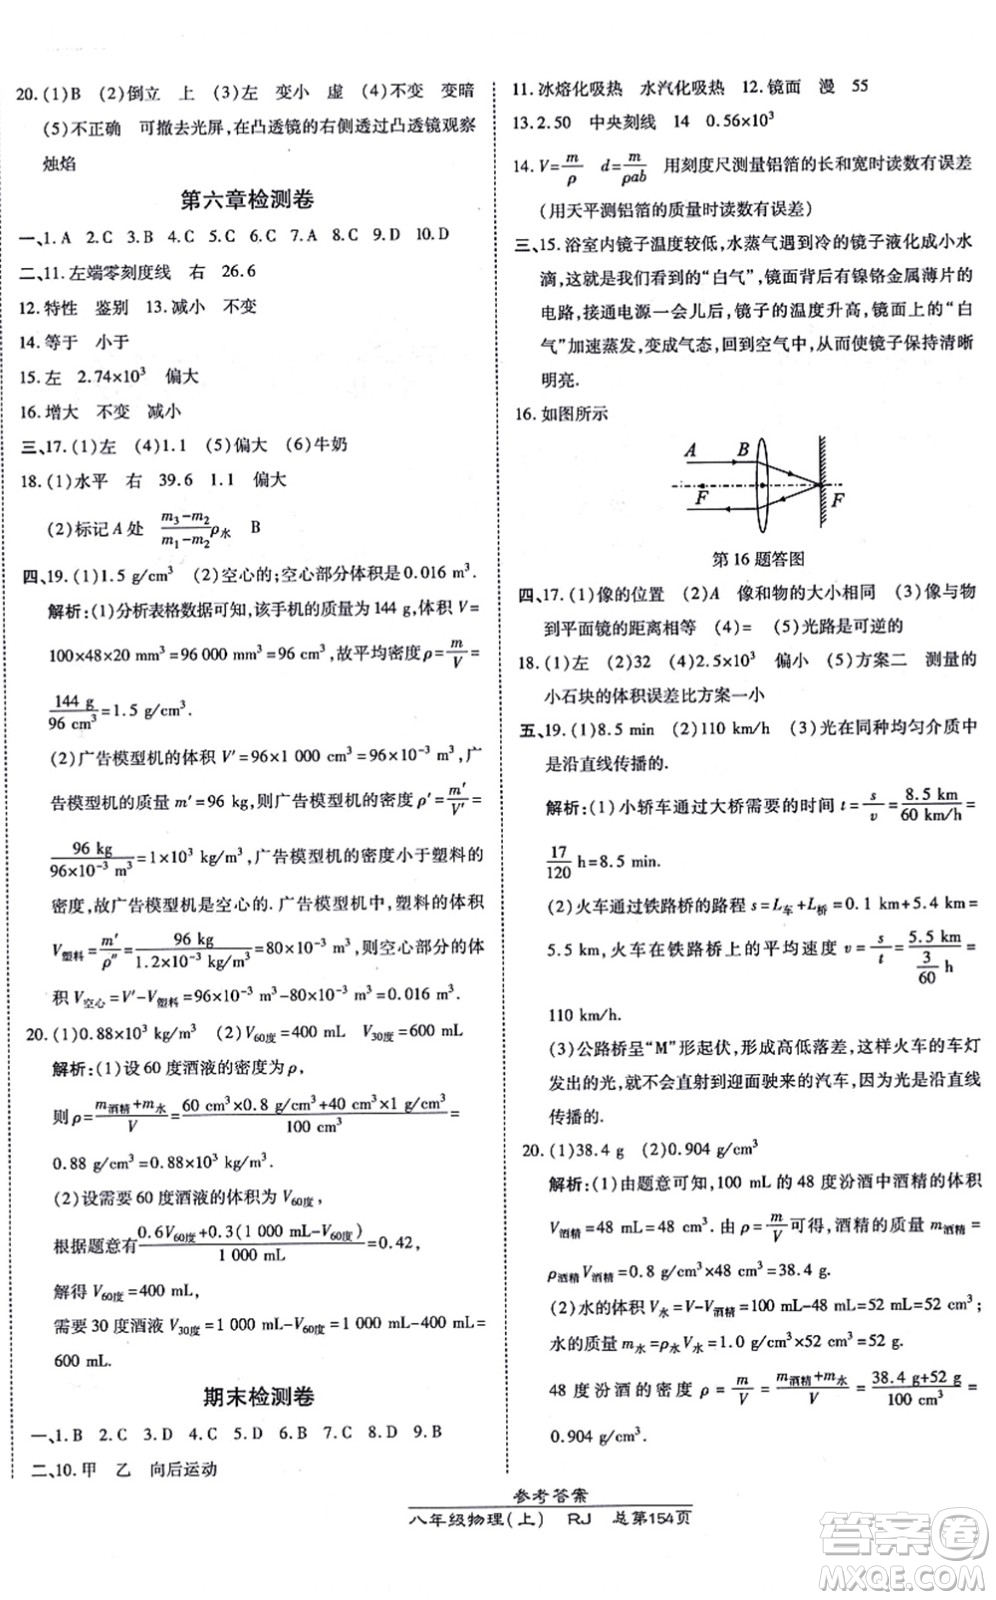 20. (1)B (2)倒立 上 (3)左 变小 虚 (4)不变 变暗
(5)不正确 可撤去光屏,在凸透镜的右侧透过凸透镜观察
烛焰
第六章检测卷
一、1. A 2. C 3. B 4. C 5. C 6. B 7. C 8. C 9. D 10. D
二、11. 左端零刻度线 右 26.6
12. 特性 鉴别 13. 减小 不变
14. 等于 小于
15. 左 2.74×10³ 偏大
16. 增大 不变 减小
三、17. (1)左 (4)1.1 (5)偏大 (6)牛奶
18. (1)水平 右 39.6 1.1 偏大
(2)标记 A 处 (m₃-m₂)/(m₁-m₂)ρ水 B
四、19. (1)1.5 g/cm³ (2)空心的;空心部分体积是0.016 m³.
解析:(1)分析表格数据可知,该手机的质量为 144 g,体积 V=
100×48×20 mm³=96 000 mm³=96 cm³,故平均密度ρ=m/V=
144 g/96 cm³=1.5 g/cm³.
(2)广告模型机的体积 V′=96×1 000 cm³=96×10⁻³ m³,广
告模型机的质量 m′=96 kg,则广告模型机的密度ρ′=m′/V′=
96 kg/96×10⁻³ m³=1×10³ kg/m³,广告模型机的密度小于塑料的
密度,故广告模型机是空心的.广告模型机中,塑料的体积
V塑料=m′/ρ″=96 kg/1.2×10³ kg/m³=80×10⁻³ m³,则空心部分的体
积 V空心=V′-V塑料=96×10⁻³ m³-80×10⁻³ m³=0.016 m³.
20. (1)0.88×10³ kg/m³ (2)V60度=400 mL V30度=600 mL
解析:(1)设 60 度酒液的密度为ρ,
则ρ=(m酒精+m水)/V=(60 cm³×0.8 g/cm³+40 cm³×1 g/cm³)/100 cm³=
0.88 g/cm³=0.88×10³ kg/m³.
(2)设需要 60 度酒液的体积为 V60度,
根据题意有(0.6V60度+0.3(1 000 mL-V60度))/1 000 mL=0.42,
解得 V60度=400 mL,
需要 30 度酒液 V30度=1 000 mL-V60度=1 000 mL-400 mL=
600 mL.
期末检测卷
一、1. B 2. C 3. D 4. C 5. D 6. B 7. D 8. D 9. B
二、10. 甲 乙 向后运动
11. 冰熔化吸热 水汽化吸热 12. 镜面 漫 55
13. 2.50 中央刻线 14 0.56×10³
14. V=m/ρ d=m/ρab 用刻度尺测量铝箔的长和宽时读数有误差
(用天平测铝箔的质量时读数有误差)
三、15. 浴室内镜子温度较低,水蒸气遇到冷的镜子液化成小水
滴,这就是我们看到的“白气”,镜面背后有镍铬金属薄片的
电路,接通电源一会儿后,镜子的温度升高,镜面上的“白
气”加速蒸发,变成气态,回到空气中,从而使镜子保持清晰
明亮.
16. 如图所示
A B
F F
第 16 题答图
四、17. (1)像的位置 (2)A 像和物的大小相同 (3)像与物
到平面镜的距离相等 (4)= (5)光路是可逆的
18. (1)左 (2)32 (4)2.5×10³ 偏小 (5)方案二 测量的
小石块的体积误差比方案一小
五、19. (1)8.5 min (2)110 km/h (3)光在同种均匀介质中
是沿直线传播的.
解析:(1)小轿车通过大桥需要的时间 t=s/v=8.5 km/60 km/h=
17/120 h=8.5 min.
(2)火车通过铁路桥的路程 s=L车+L桥=0.1 km+5.4 km=
5.5 km,火车在铁路桥上的平均速度 v=s/t=5.5 km/(3/60 h)=
110 km/h.
(3)公路桥呈“M”形起伏,形成高低落差,这样火车的车灯
发出的光,就不会直射到迎面驶来的汽车,因为光是沿直线
传播的.
20. (1)38.4 g (2)0.904 g/cm³
解析:(1)由题意可知,100 mL 的 48 度汾酒中酒精的体积
V酒精=48 mL=48 cm³.由ρ=m/V可得,酒精的质量 m酒精=
ρ酒精V酒精=0.8 g/cm³×48 cm³=38.4 g.
(2)水的体积 V水=V-V酒精=100 mL-48 mL=52 mL=52 cm³;
水的质量 m水=ρ水V水=1.0 g/cm³×52 cm³=52 g.
48 度汾酒的密度ρ=m/V=(m酒精+m水)/V=(38.4 g+52 g)/100 cm³=
0.904 g/cm³.
参考答案
八年级物理(上) RJ 总第154页
答案圈
MXQE.COM